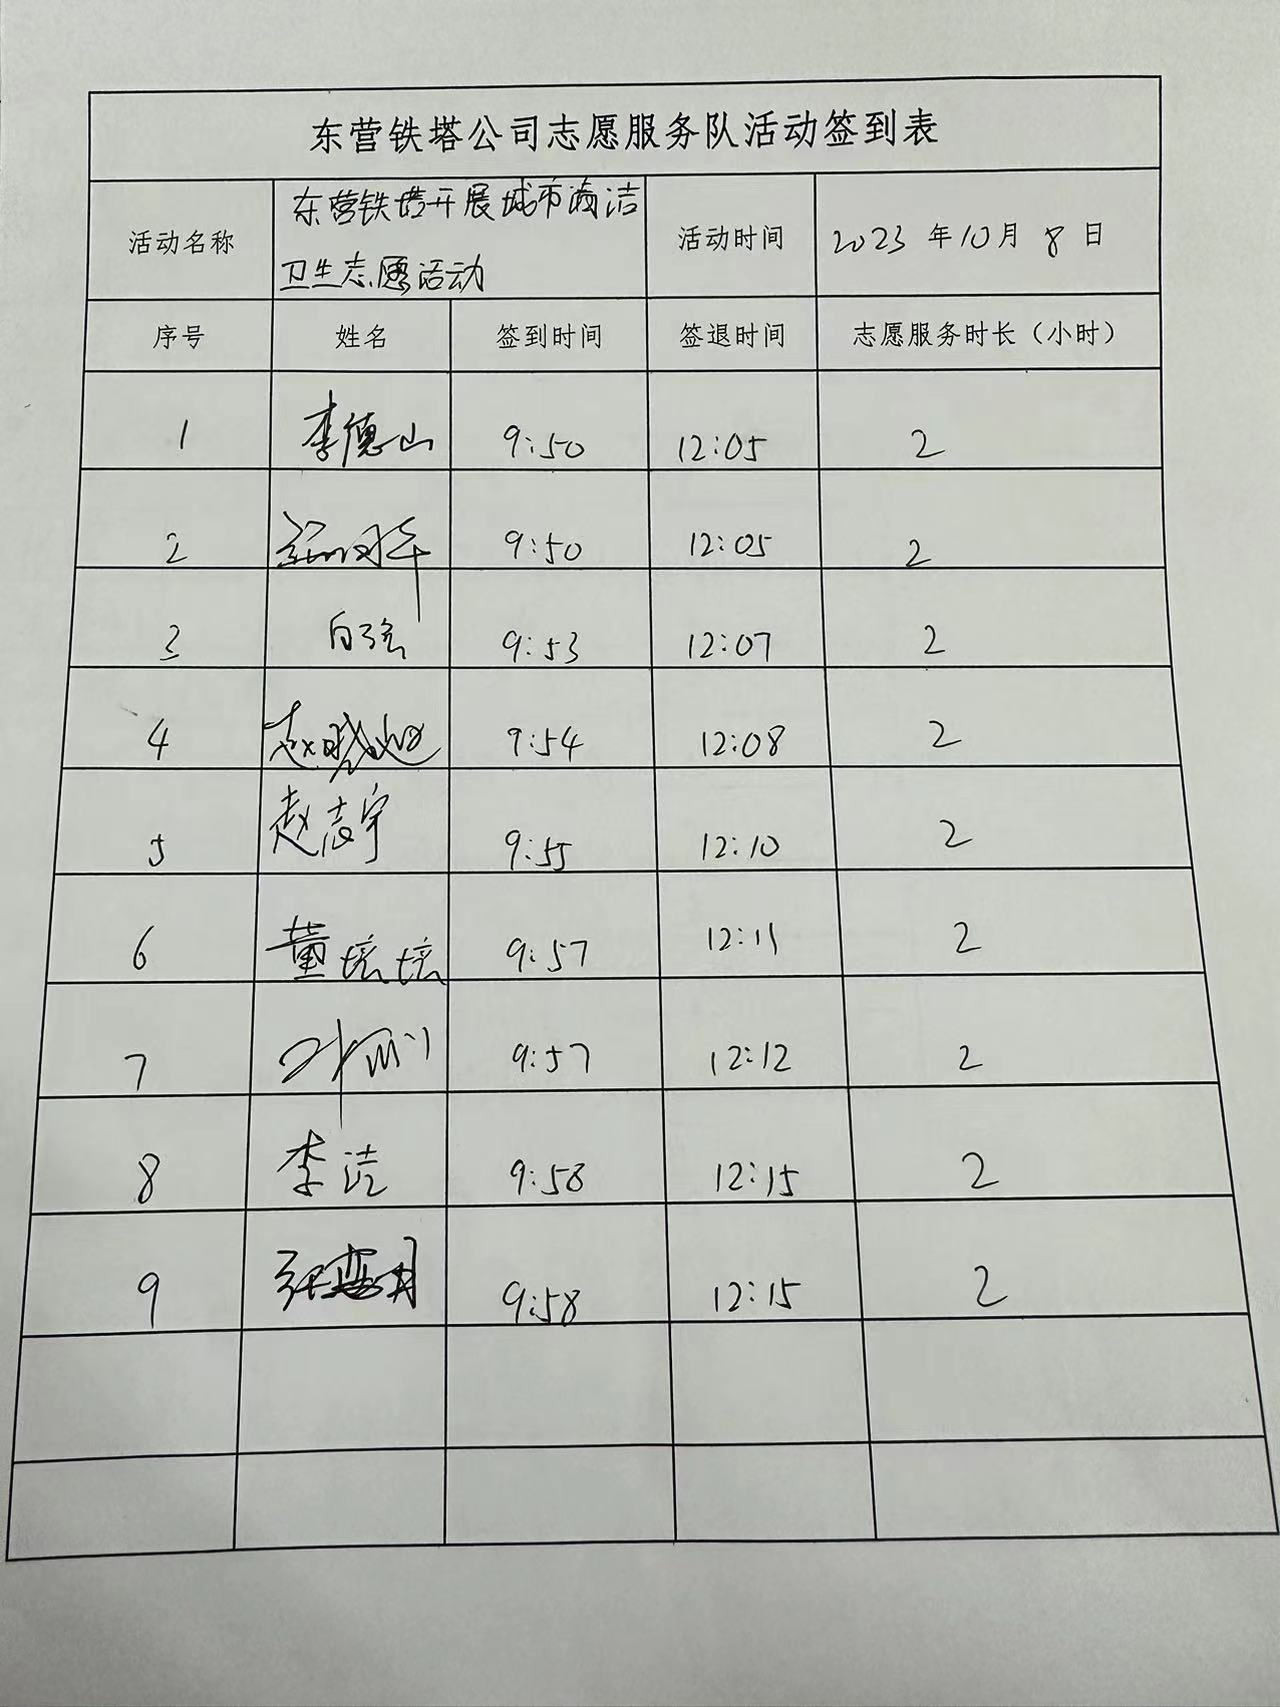 东营铁塔公司志愿服务队活动签到表
活动名称 东营铁塔开展城市清洁 活动时间 2023 年 10 月 8 日
卫生志愿活动
序号 姓名 签到时间 签退时间 志愿服务时长（小时）
1 李德山 9:50 12:05 2
2 9:50 12:05 2
3 白强 9:53 12:07 2
4 赵晓旭 9:54 12:08 2
5 赵志宇 9:55 12:10 2
6 董培培 9:57 12:11 2
7 9:57 12:12 2
8 李洁 9:58 12:15 2
9 9:58 12:15 2